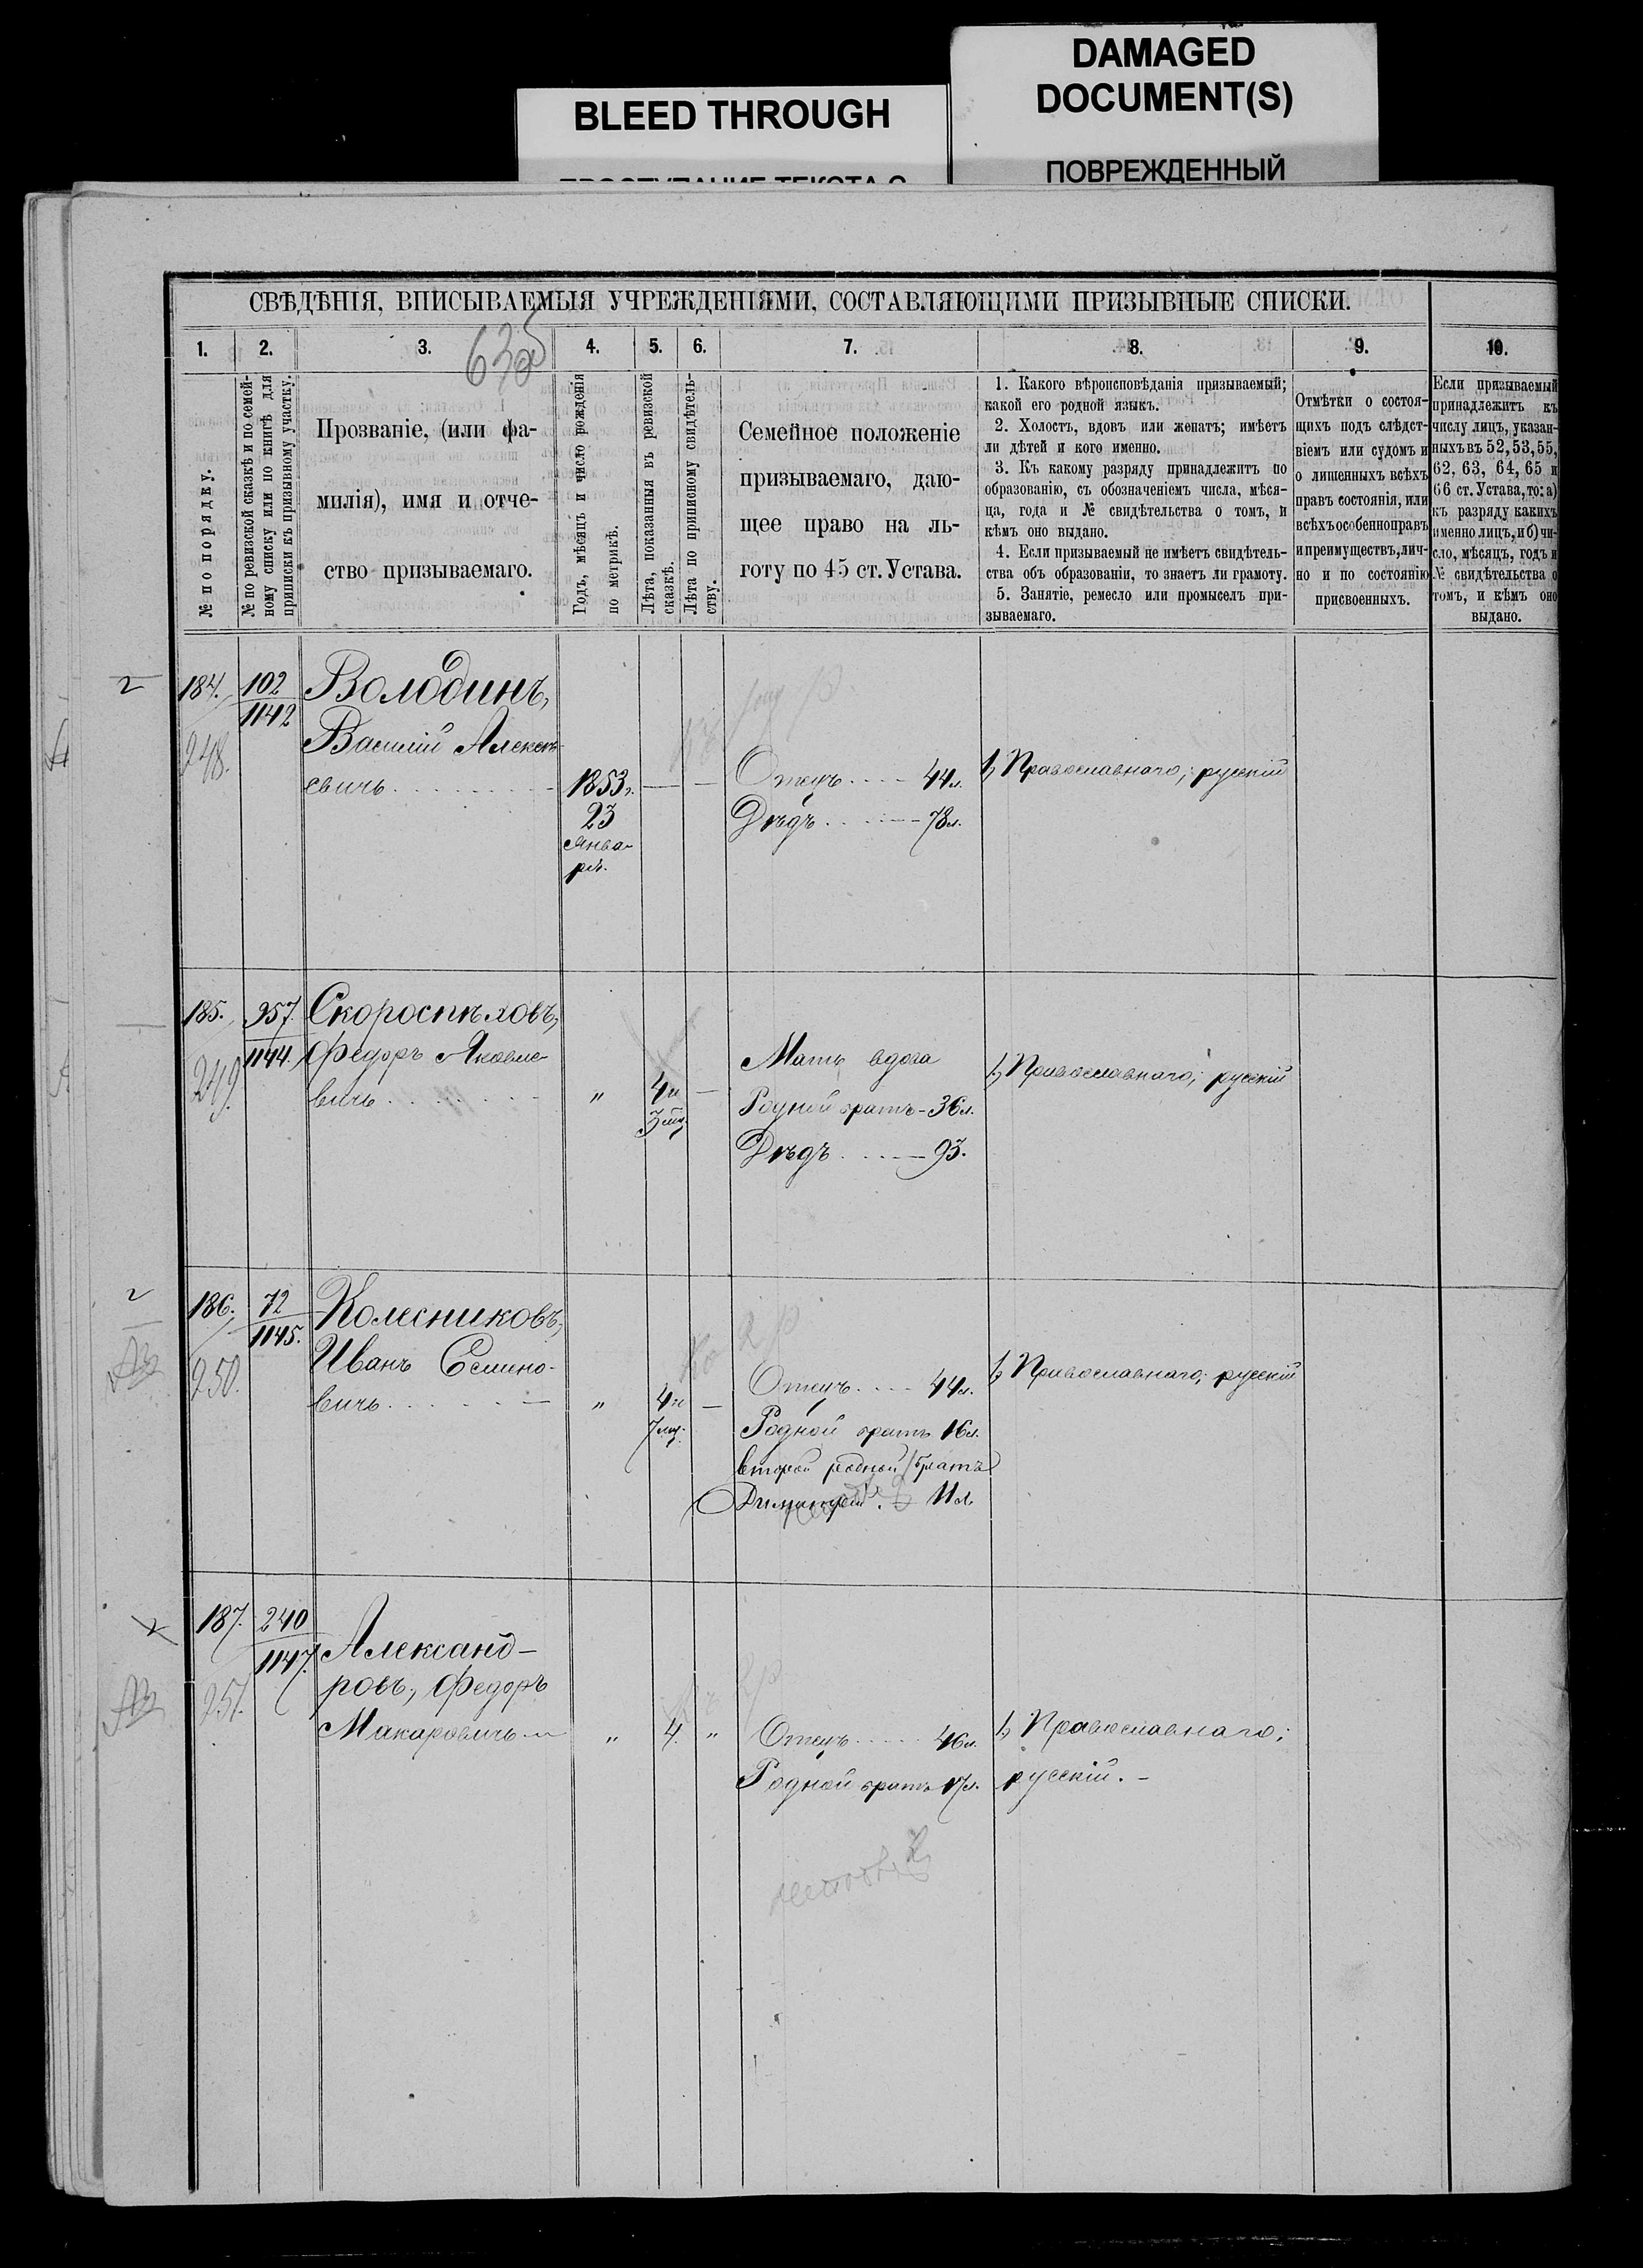 DAMAGED
DOCUMENT(S)
BLEED THROUGH
ПОВРЕЖДЕННЫЙ
СВѢДѢНІЯ, ВПИСЫВАЕМЫЯ УЧРЕЖДЕНІЯМИ, СОСТАВЛЯЮЩИМИ ПРИЗЫВНЫЕ СПИСКИ.
1. 2. 3. 4. 5. 6. 7. 8. 9. 10.
№ по порядку.
№ по ревизской сказкѣ и по семей-
ному списку или по книгѣ для
приписки къ призывному участку.
Прозваніе, (или фа-
милія), имя и отче-
ство призываемаго.
Годъ, мѣсяцъ и число рожденія
по метрикѣ.
Лѣта, показанныя въ ревизской
сказкѣ.
Лѣта по приписному свидѣтель-
ству.
Семейное положеніе
призываемаго, даю-
щее право на ль-
готу по 45 ст. Устава.
1. Какого вѣроисповѣданія призываемый;
какой его родной языкъ.
2. Холостъ, вдовъ или женатъ; имѣетъ
ли дѣтей и кого именно.
3. Къ какому разряду принадлежитъ по
образованію, съ обозначеніемъ числа, мѣся-
ца, года и № свидѣтельства о томъ, и
кѣмъ оно выдано.
4. Если призываемый не имѣетъ свидѣтель-
ства объ образованіи, то знаетъ ли грамоту.
5. Занятіе, ремесло или промыселъ при-
зываемаго.
Отмѣтки о состоя-
щихъ подъ слѣдст-
віемъ или судомъ и
о лишенныхъ всѣхъ
правъ состоянія, или
всѣхъ особенно правъ
и преимуществъ, лич-
но и по состоянію
присвоенныхъ.
Если призываемый
принадлежитъ къ
числу лицъ, указан-
ныхъ въ 52, 53, 55,
62, 63, 64, 65 и
66 ст. Устава, то: а)
къ разряду какихъ
именно лицъ, и б) чи-
сло, мѣсяцъ, годъ и
№ свидѣтельства о
томъ, и кѣмъ оно
выдано.
2
184.
248.
102
1142
Володинъ,
Василій Алексѣ-
евичъ
1853 г.
23
Янва-
ря.
Отецъ 44 л.
Дѣдъ 78 л.
1, Православнаго; русскій
185.
249.
357.
1144.
Скороспѣловъ,
Федоръ Яковле-
вичъ
"
4 и
3 мц.
Мать вдова
Родной братъ - 36 л.
Дѣдъ 93.
1, Православнаго; русскій
2
186.
250.
72
1145.
Колесниковъ,
Иванъ Семино-
вичъ
"
4 и
7 мц.
Отецъ 44 л.
Родной братъ 16 л.
второй родной братъ
Димитрій 11 л.
1, Православнаго; русскій
2
187.
251.
240
1147.
Александ-
ровъ, Федоръ
Макаровичъ
"
4.
"
Отецъ 46 л.
Родной братъ 17 л.
1, Православнаго;
русскій. -